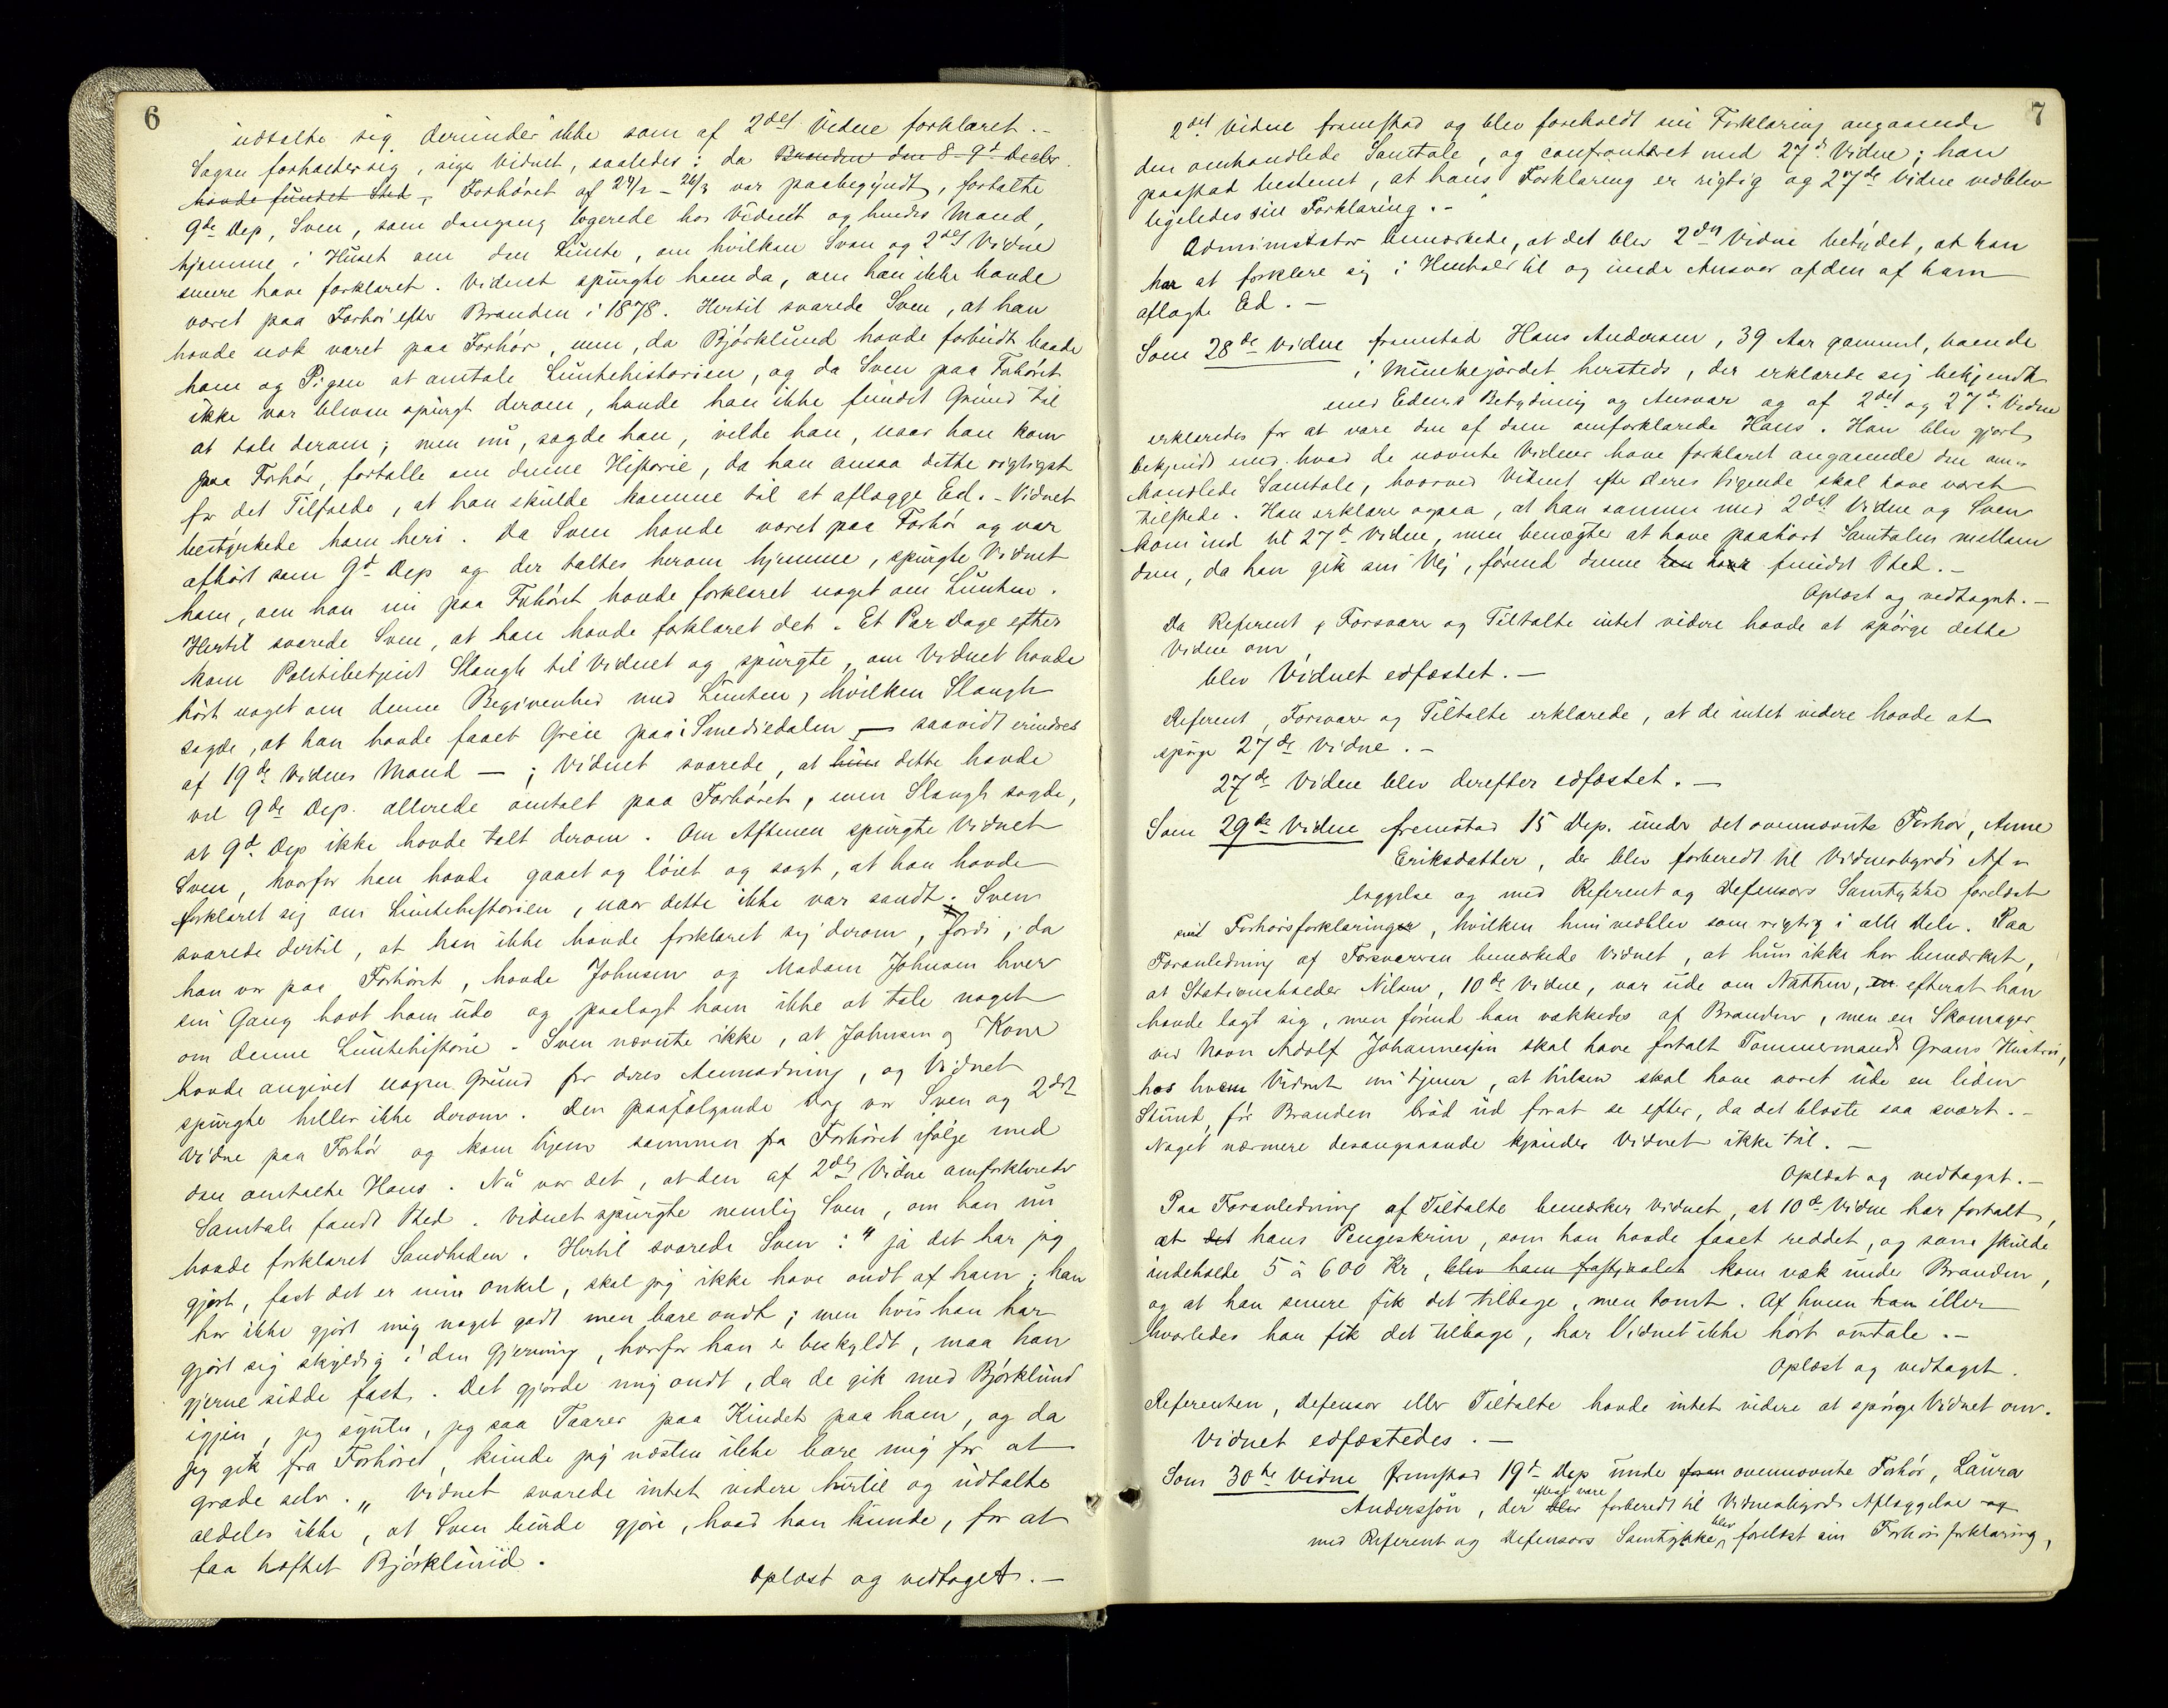 6
udtalte sig derunder ikke som af 2det Vidne forklaret.-
Sagen forholder sig, siger Vidnet, saaledes: da Branden den 8-9d Decbr
havde fundet Sted, Forhøret af 24/2 - 26/3 var paabegyndt, fortalte
9de Dep, Sven, som dengang logerede hos Vidnet og hendes Mand,
hjemme i Huset om den Lunte, om hvilken Sven og 2det Vidne
senere have forklaret. Vidnet spurgte ham da, om han ikke havde
været paa Forhør efter Branden i 1878. Hertil svarede Sven, at han
havde nok været paa Forhør, men, da Bjørklund havde forbudt baade
ham og Pigen at omtale Luntehistorien, og da Sven paa Forhøret
ikke var bleven spurgt derom, havde han ikke fundet Grund til
at tale derom; men nu, sagde han, vilde han, naar han kom
paa Forhør, fortalle om denne Historie, da han ansaa dette rigtigst
for det Tilfælde, at han skulde komme til at aflægge Ed. - Vidnet
bestyrkede ham heri. Da Sven havde været paa Forhør og var
afhørt som 9d Dep og der taltes herom hjemme, spurgte Vidnet
ham, om han nu paa Forhøret havde forklaret noget om Lunten.
Hertil svarede Sven, at han havde forklaret det. Et Par Dage efter
kom Politibetjent Slaugh til Vidnet og spurgte, om Vidnet havde
hørt noget om denne Begivenhed med Lunten, hvilken Slaugh
sagde, at han havde faaet Greie paa i Smediedalen, - saavidt erindres
af 19de Vidnes Mand - ; Vidnet svarede, at hun dette havde
vel 9de Dep. allerede omtalt paa Forhøret, men Slaugh sagde,
at 9d Dep ikke havde talt derom. Om Aftenen spurgte Vidnet
Sven, hvorfor han havde gaaet og løiet og sagt, at han havde
forklaret sig om Luntehistorien, naar dette ikke var sandt. Sven
svarede dertil, at han ikke havde forklaret sig derom, fordi, da
han var paa Forhøret, havde Johnsen og Madam Johnsen hver
sin Gang havt ham ude og paalagt ham ikke at tale noget
om denne Luntehistorie. Sven nævnte ikke, at Johnsen og Kone
havde angivet nogen Grund for deres Anmodning, og Vidnet
spurgte heller ikke derom. Den paafølgende Dag var Sven og 2det
Vidne paa Forhør og kom hjem sammen fra Forhøret ifølge med
den omtalte Hans. Nu var det, at den af 2det Vidne omforklarede
Samtale fandt Sted. Vidnet spurgte nemlig Sven, om han nu
havde forklaret Sandheden. Hertil svarede Sven: " ja det har jeg
gjort, fast det er min Onkel, skal jeg ikke have ondt af ham; han
har ikke gjort mig noget godt men bare ondt; men hvis han har
gjort sig skyldig i den Gjerning, hvorfor han er beskyldt, maa han
gjerne sidde fast. Det gjorde mig ondt, da de gik med Bjørklund
igjen, jeg syntes, jeg saa Taarer paa Kindet paa ham, og da
jeg gik fra Forhøret, kunde jeg næsten ikke bare mig for at
græde selv." Vidnet svarede intet videre hertil og udtalte
aldeles ikke, at Sven burde gjøre, hvad han kunde, for at
faa hæftet Bjørklund.
Oplæst og vedtaget.-
7
2det Vidne fremstod og blev foreholdt sin Forklaring angaaende
den omhandlede Samtale, og confronteret med 27de Vidne; han
paastod bestemt, at hans Forklaring er rigtig og 27de Vidne vedblev
ligeledes sin Forklaring.-
Administrator bemærkede, at det blev 2det Vidne betydet, at han
har at forklare sig i Henhold til og under Ansvar af den af ham
aflagte Ed.-
Som 28de Vidne fremstod Hans Andersen, 39 Aar gammel, boende
i Munkejordet hersteds, der erklærede sig bekjendt
med Edens Betydning og Ansvar og af 2det og 27de Vidne
erklæredes for at være den af dem omforklarede Hans. Han blev gjort
bekjendt med hvad de nævnte Vidner have forklaret angaaende den om-
handlede Samtale, hvorved Vidnet efter deres Sigende skal have været
tilstede. Han erklærer ogsaa, at han sammen med 2det Vidne og Sven
kom ind til 27d Vidne, men benægter at have paahørt Samtalen mellem
dem, da han gik sin Vej, førend denne han have fundet Sted.-
Oplæst og vedtaget.-
Da Referent, Forsvarer og Tiltalte intet videre havde at spørge dette
Vidne om,
blev Vidnet edfæstet.-
Referent, Forsvarer og Tiltalte erklærede, at de intet videre havde at
spørge 27de Vidne.-
27de Vidne blev derefter edfæstet.-
Som 29de Vidne fremstod 15 Dep. under det ovennævnte Forhør, Anne
Eriksdatter, der blev forberedt til Vidnesbyrds Af-
læggelse og med Referent og Defensors Samtykke forelæst
sin Forhørsforklaringer, hvilken hun vedblev som rigtig i alle Dele. Paa
Foranledning af Forsvareren bemærkede Vidnet, at hun ikke har bemærket,
at Stationsholder Nilsen, 10de Vidne, var ude om Natten, efterat han
havde lagt sig, men førend han vækkedes af Branden, men en Skomager
ved Navn Adolf Johannesjen skal have fortalt Tømmermand Grans Hustru,
hos hvem Vidnet nu tjener, at Nilsen skal have været ude en liden
Stund, før Branden brød ud forat se efter, da det blæste saa svært.-
Noget nærmere desangaaende kjender Vidnet ikke til.-
Oplæst og vedtaget.-
Paa Foranledning af Tiltalte bemærker Vidnet, at 10de Vidne har fortalt,
at det hans Pengeskrin, som han havde faaet reddet, og som skulde
indeholde 5 à 600 Kr, blev ham frastjaalet kom væk under Branden,
og at han senere fik det tilbage, men tomt. Af hvem han eller
hvorledes han fik det tilbage, har Vidnet ikke hørt omtale.-
Oplæst og vedtaget.
Referenten, Defensor eller Tiltalte havde intet videre at spørge Vidnet om.
Vidnet edfæstedes.-
Som 30te Vidne fremstod 19d Dep under ovennævnte Forhør, Laura
Andersjøn, der blev forberedt til Vidnesbyrds Aflæggelse og
med Referent og Defensors Samtykke blev forelæst sin Forhørsforklaring,